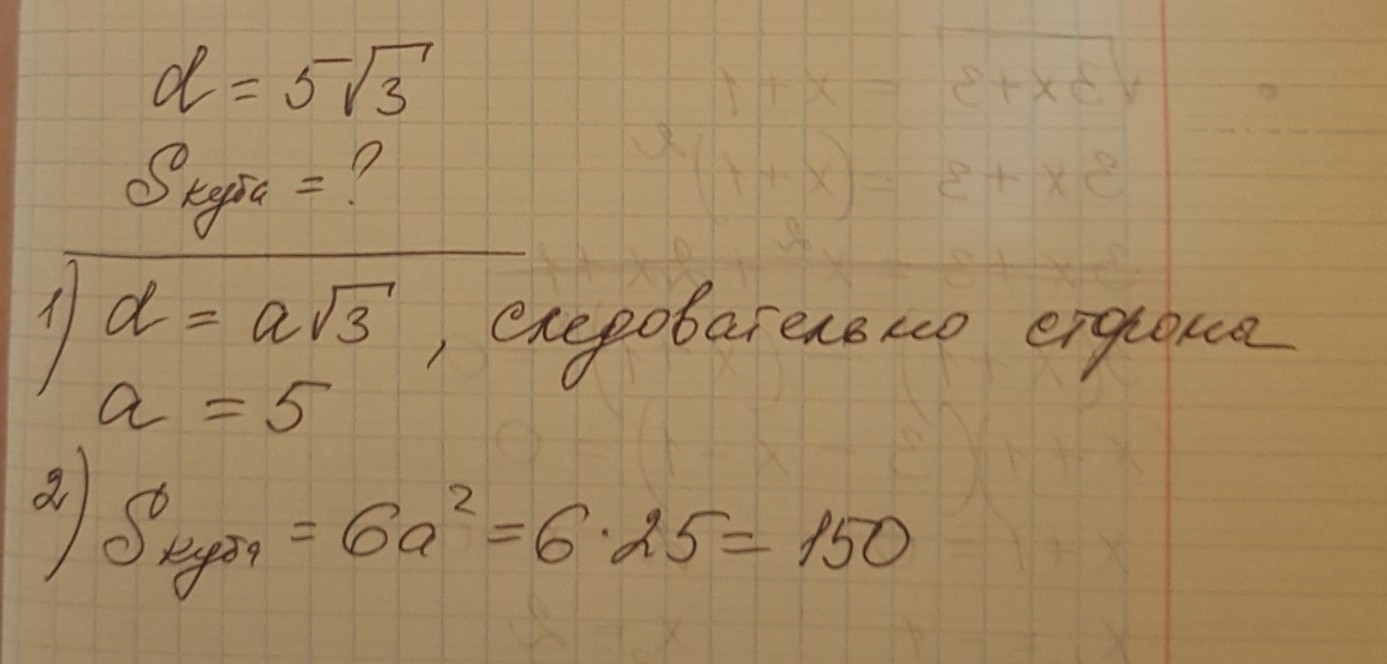 d = 5√3
Sкуба = ?
1) d = a√3 , следовательно сторона
a = 5
2) Sкуба = 6a² = 6·25 = 150